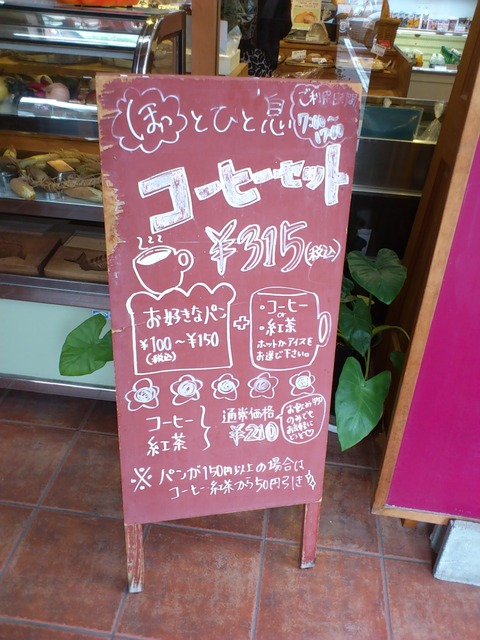 ほっとひと息
ご利用時間
7:00〜
17:00
コーヒーセット
¥315(税込)
お好きなパン
¥100〜¥150
(税込)
+
・コーヒー
or
・紅茶
ホットかアイスを
お選び下さい。
コーヒー
紅茶
通常価格
¥210
お飲み物
のみでも
お気軽に
どうぞ♡
※パンが150円以上の場合は
コーヒー・紅茶から50円引き